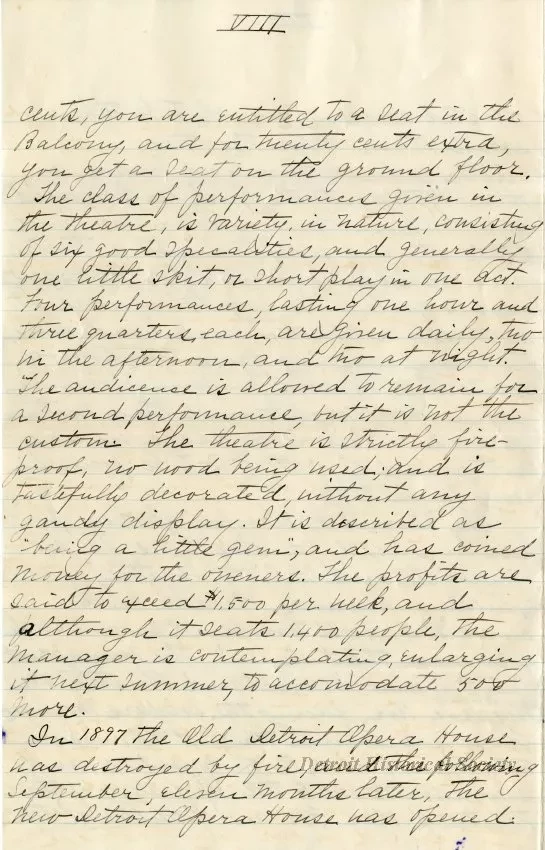 VIII
cents, you are entitled to a seat in the
Balcony, and for twenty cents extra,
you get a seat on the ground floor.
The class of performances given in
the theatre, is variety, in nature, consisting
of six good specialties, and generally
one little skit, or short play in one act.
Four performances, lasting one hour and
three quarters, each, are given daily, two
in the afternoon, and two at night.
The audicence is allowed to remain for
a second performance, but it is not the
custom. The theatre is strictly fire-
proof, no wood being used; and is
tastefully decorated, without any
gaudy display. It is described as
"being a little gem", and has coined
money for the owners. The profits are
said to exceed $1,500 per week, and
although it seats 1,400 people, the
manager is contemplating, enlarging
it next summer, to accomodate 500
more.
In 1897 the Old Detroit Opera House
was destroyed by fire, and the following
September, eleven months later, the
new Detroit Opera House was opened.
Detroit Historical Society